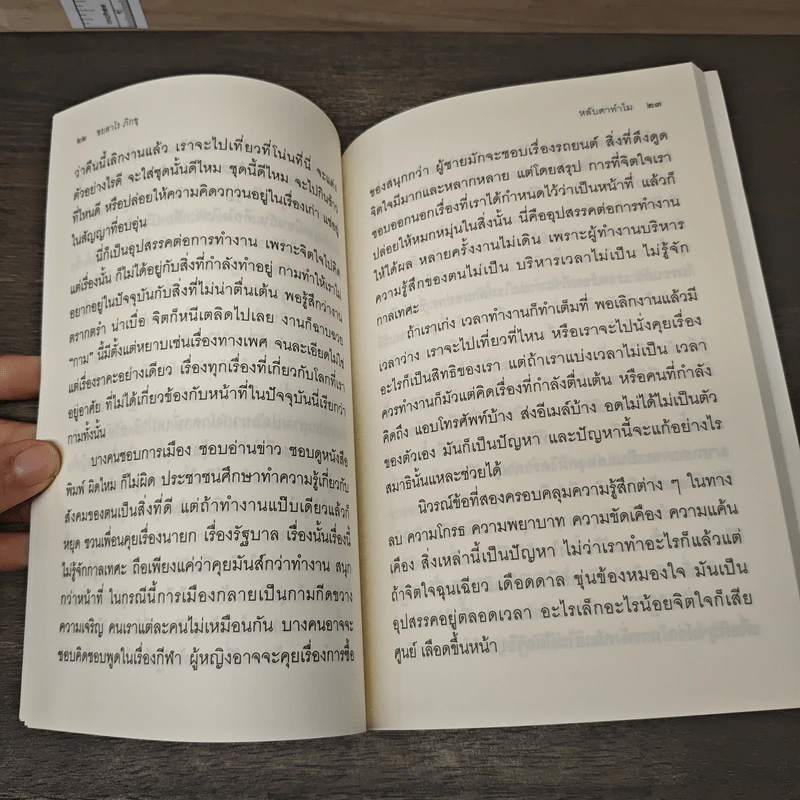 ๒๒ ชยสาโร ภิกขุ
ว่าคืนนี้เลิกงานแล้ว เราจะไปเที่ยวที่โน่นที่นี่ จะแต่ง
ตัวอย่างไรดี จะใส่ชุดนั้นดีไหม ชุดนี้ดีไหม จะไปกินข้าว
ที่ไหนดี หรือปล่อยให้ความคิดวกวนอยู่ในเรื่องเก่า แช่อยู่
ในสัญญาที่อบอุ่น
นี่ก็เป็นอุปสรรคต่อการทำงาน เพราะจิตใจไปติด
แต่เรื่องนั้น ก็ไม่ได้อยู่กับสิ่งที่กำลังทำอยู่ กามทำให้เราไม่
อยากอยู่ในปัจจุบันกับสิ่งที่ไม่น่าตื่นเต้น พอรู้สึกว่างาน
ตรากตรำ น่าเบื่อ จิตก็หนีเตลิดไปเลย งานก็ฉาบฉวย
“กาม” นี้มีตั้งแต่หยาบเช่นเรื่องทางเพศ จนละเอียดไม่ใช่
แต่เรื่องราคะอย่างเดียว เรื่องทุกเรื่องที่เกี่ยวกับโลกที่เรา
อยู่อาศัย ที่ไม่ได้เกี่ยวข้องกับหน้าที่ในปัจจุบันนี่เรียกว่า
กามทั้งนั้น
บางคนชอบการเมือง ชอบอ่านข่าว ชอบดูหนังสือ
พิมพ์ ผิดไหม ก็ไม่ผิด ประชาชนศึกษาทำความรู้เกี่ยวกับ
สังคมของตนเป็นสิ่งที่ดี แต่ถ้าทำงานแป๊บเดียวแล้วก็
หยุด ชวนเพื่อนคุยเรื่องนายก เรื่องรัฐบาล เรื่องนั้นเรื่องนี้
ไม่รู้จักกาลเทศะ ถือเพียงแค่ว่าคุยมันส์กว่าทำงาน สนุก
กว่าหน้าที่ ในกรณีนี้การเมืองกลายเป็นกามกีดขวาง
ความเจริญ คนเราแต่ละคนไม่เหมือนกัน บางคนอาจจะ
ชอบคิดชอบพูดในเรื่องกีฬา ผู้หญิงอาจจะคุยเรื่องการซื้อ
หลับตาทำไม ๒๓
ของสนุกกว่า ผู้ชายมักจะชอบเรื่องรถยนต์ สิ่งที่ดึงดูด
จิตใจมีมากและหลากหลาย แต่โดยสรุป การที่จิตใจเรา
ชอบออกนอกเรื่องที่เราได้กำหนดไว้ว่าเป็นหน้าที่ แล้วก็
ปล่อยให้หมกหมุ่นในสิ่งนั้น นี่คืออุปสรรคต่อการทำงาน
ให้ได้ผล หลายครั้งงานไม่เดิน เพราะผู้ทำงานบริหาร
ความรู้สึกของตนไม่เป็น บริหารเวลาไม่เป็น ไม่รู้จัก
กาลเทศะ
ถ้าเราเก่ง เวลาทำงานก็ทำเต็มที่ พอเลิกงานแล้วมี
เวลาว่าง เราจะไปเที่ยวที่ไหน หรือเราจะไปนั่งคุยเรื่อง
อะไรก็เป็นสิทธิของเรา แต่ถ้าเราแบ่งเวลาไม่เป็น เวลา
ควรทำงานก็มัวแต่คิดเรื่องที่กำลังตื่นเต้น หรือคนที่กำลัง
คิดถึง แอบโทรศัพท์บ้าง ส่งอีเมล์บ้าง อดไม่ได้ไม่เป็นตัว
ของตัวเอง มันก็เป็นปัญหา และปัญหานี้จะแก้อย่างไร
สมาธินั้นแหละช่วยได้
นิวรณ์ข้อที่สองครอบคลุมความรู้สึกต่าง ๆ ในทาง
ลบ ความโกรธ ความพยาบาท ความขัดเคือง ความแค้น
เคือง สิ่งเหล่านี้เป็นปัญหา ไม่ว่าเราทำอะไรก็แล้วแต่
ถ้าจิตใจฉุนเฉียว เดือดดาล ขุ่นข้องหมองใจ มันเป็น
อุปสรรคอยู่ตลอดเวลา อะไรเล็กอะไรน้อยจิตใจก็เสีย
ศูนย์ เลือดขึ้นหน้า